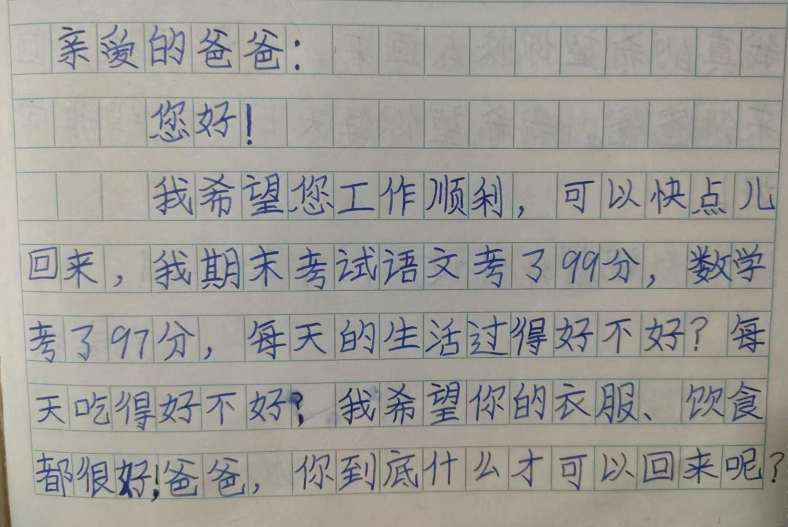 亲爱的爸爸：
您好！
我希望您工作顺利，可以快点儿
回来，我期末考试语文考了99分，数学
考了97分，每天的生活过得好不好？每
天吃得好不好？我希望你的衣服、饮食
都很好！爸爸，你到底什么才可以回来呢？